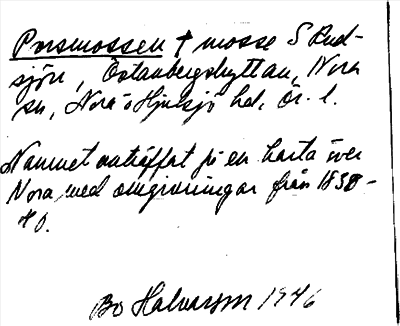 Porsmossen † mosse S Rud-
sjön, Östanbergshyttan, Nora
sn, Nora o Hjulsjö hd, Ör. l.
Namnet anträffat på en karta över
Nora med omgivningar från 1838-
40.
Bo Halvarson 1946